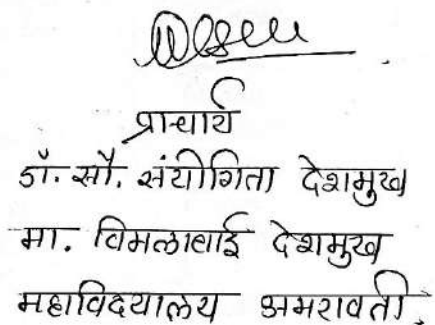 प्राचार्य
डॉ. सौ. संयोगिता देशमुख
मा. विमलाबाई देशमुख
महाविदयालय अमरावती.